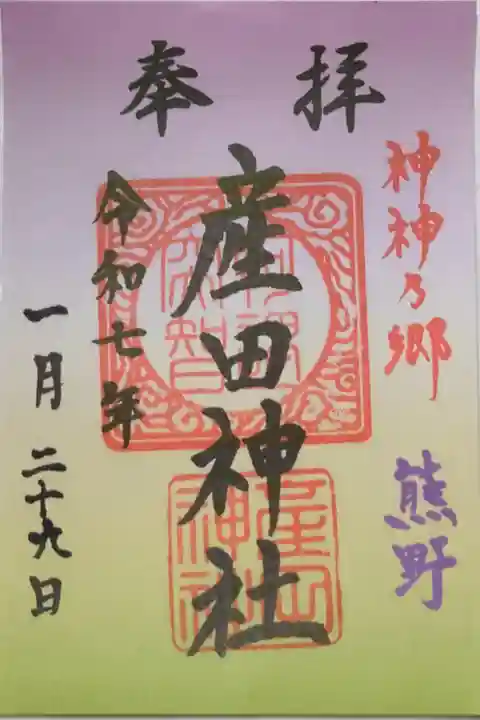 奉拝
神神乃郷
熊野
産田神社
令和七年
一月二十九日
産田
神社